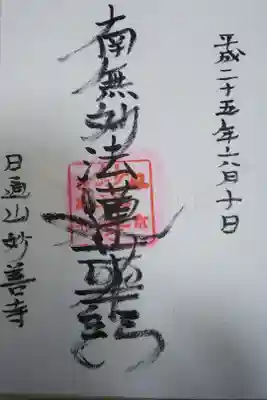 平成二十五年六月十日
南無妙法蓮華経
日通山妙善寺